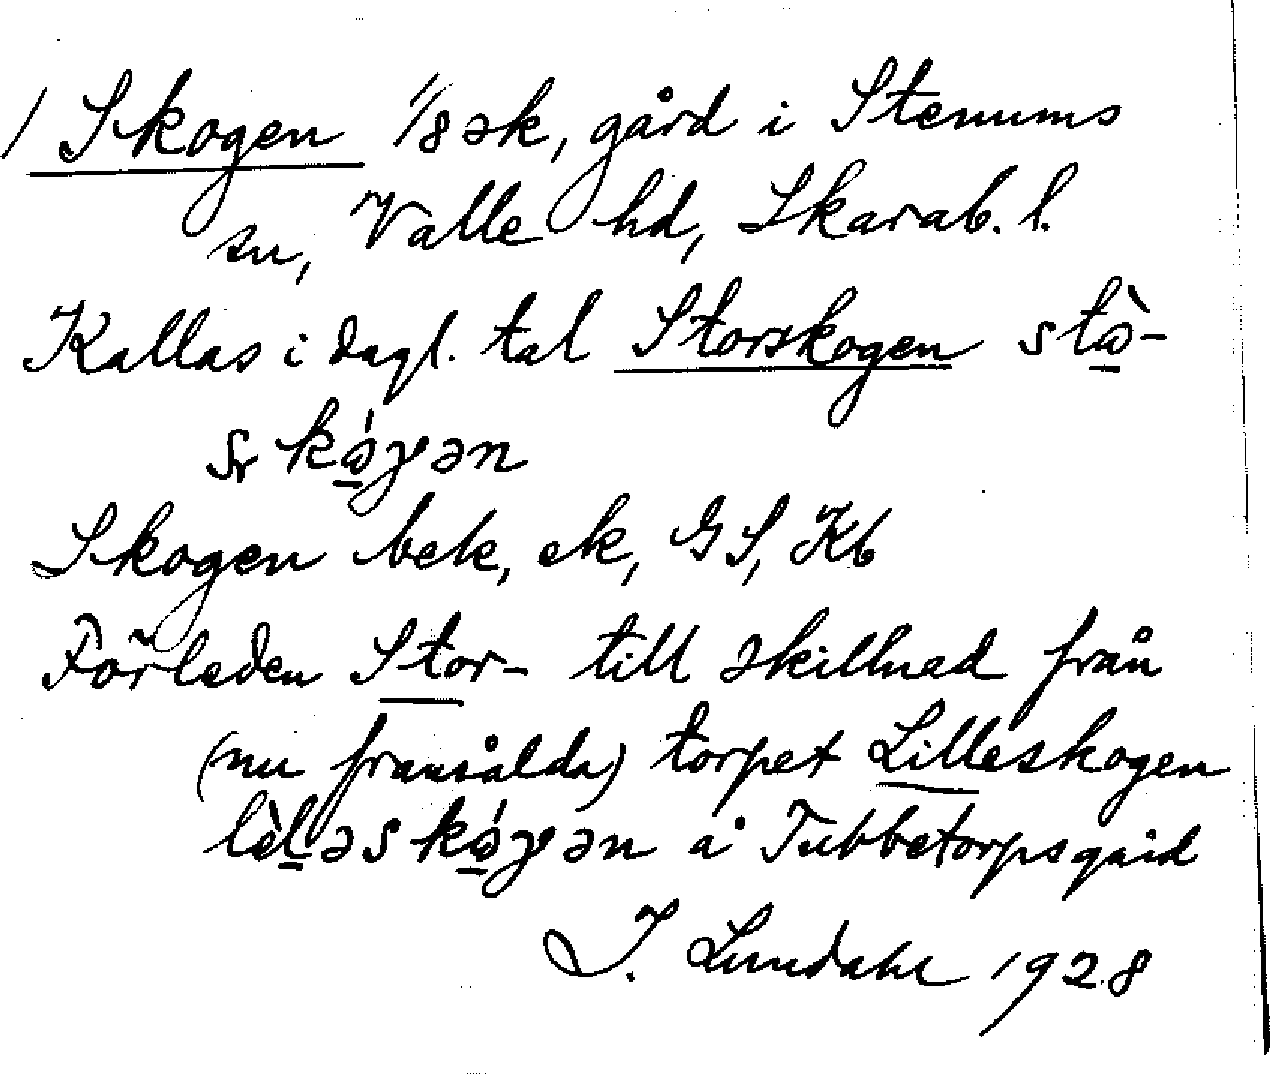 1 Skogen 1/8 sk, gård i Stenums
sn, Valle hd, Skarab. l.
Kallas i dagl. tal Storskogen stɷ̀-
skɷ́γən
Skogen bek, ek, GS, Kb
Förleden Stor- till skillnad från
(nu fransålda) torpet Lilleskogen
lèləskɷ́γən å Tubbetorpsgärd
I. Lundahl 1928